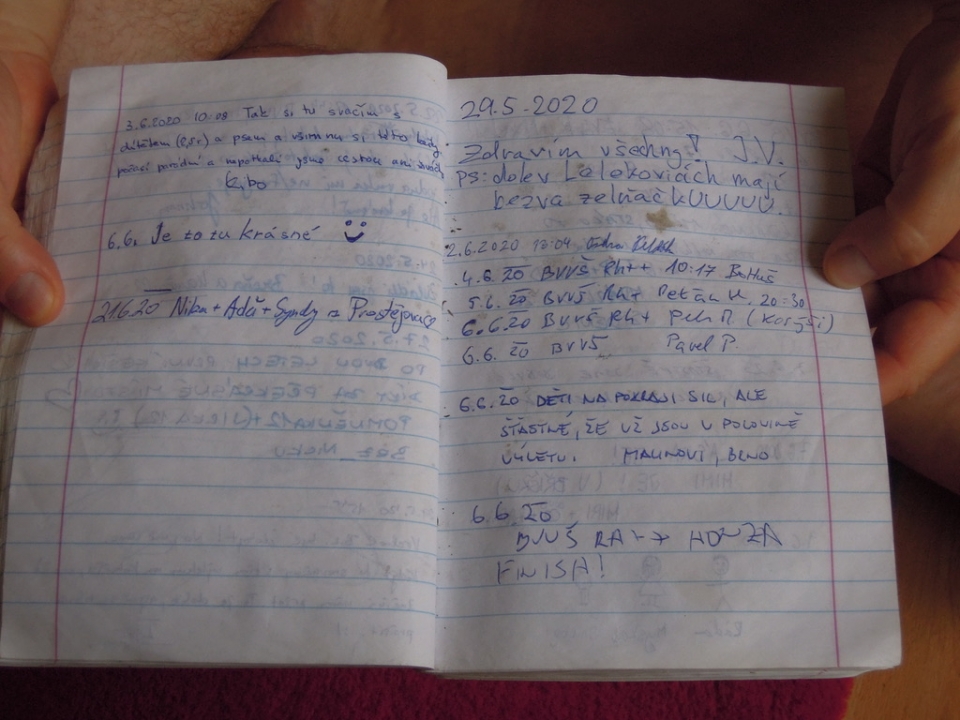 3.6.2020 10:08 Tak si tu svačím s
dítětem a psem a všímám si této knihy
počasí parádní a nepotkali jsme cestou ani
6.6. Je to tu krásné
21.6.20 Niba + Adá + Syndy z Prostějova
29.5.2020
Zdravím všechny! J.V.
PS: dole v Lelekovicích mají
bezva zelňačkUUUUU.
2.6.2020
4.6.20 BVVŠ Rh++ 10:17
5.6.20 BVVŠ Rh+ Petán H. 20:30
6.6.20 BVVŠ Rh+ Petr M.
6.6.20 BVVŠ Pavel P.
6.6.20 DĚTI NA POKRAJI SIL, ALE
ŠŤASTNÉ, ŽE UŽ JSOU V POLOVINĚ
VÝLETU. MALINOVI, BRNO
6.6.20
BVVŠ HONZA
FINISH!